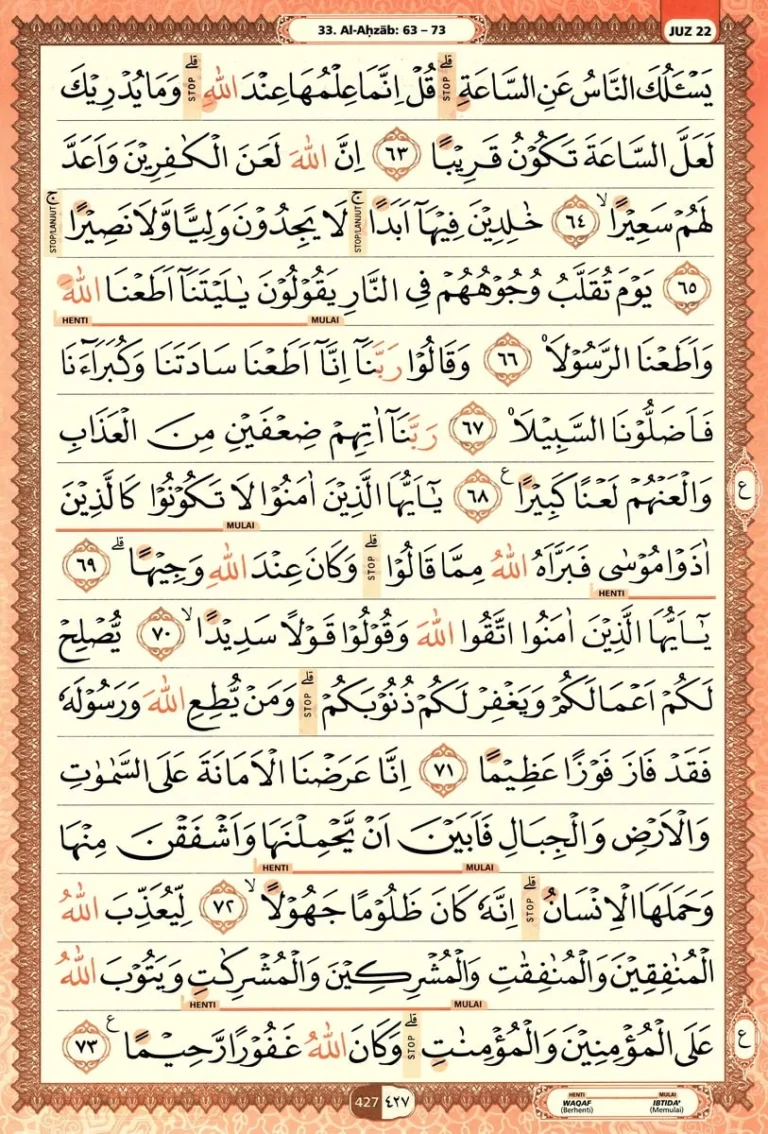 33. Al-Aḥzāb: 63 – 73
JUZ 22
يَسْـَٔلُكَ النَّاسُ عَنِ السَّاعَةِۗ STOP قُلْ اِنَّمَا عِلْمُهَا عِنْدَ اللّٰهِۗ STOP وَمَا يُدْرِيْكَ
لَعَلَّ السَّاعَةَ تَكُوْنُ قَرِيْبًا ٦٣ اِنَّ اللّٰهَ لَعَنَ الْكٰفِرِيْنَ وَاَعَدَّ
لَهُمْ سَعِيْرًاۙ ٦٤ خٰلِدِيْنَ فِيْهَآ اَبَدًاۚ STOP/LANJUT لَا يَجِدُوْنَ وَلِيًّا وَّلَا نَصِيْرًاۚ STOP/LANJUT
٦٥ يَوْمَ تُقَلَّبُ وُجُوْهُهُمْ فِى النَّارِ يَقُوْلُوْنَ يٰلَيْتَنَآ اَطَعْنَا اللّٰهَ
MULAI HENTI
وَاَطَعْنَا الرَّسُوْلَا۠ ٦٦ وَقَالُوْا رَبَّنَآ اِنَّآ اَطَعْنَا سَادَتَنَا وَكُبَرَاۤءَنَا
فَاَضَلُّوْنَا السَّبِيْلَا۠ ٦٧ رَبَّنَآ اٰتِهِمْ ضِعْفَيْنِ مِنَ الْعَذَابِ
وَالْعَنْهُمْ لَعْنًا كَبِيْرًا ع ٦٨ يٰٓاَيُّهَا الَّذِيْنَ اٰمَنُوْا لَا تَكُوْنُوْا كَالَّذِيْنَ
ع
MULAI
اٰذَوْا مُوْسٰى فَبَرَّاَهُ اللّٰهُ مِمَّا قَالُوْاۗ STOP وَكَانَ عِنْدَ اللّٰهِ وَجِيْهًاۗ ٦٩
HENTI
يٰٓاَيُّهَا الَّذِيْنَ اٰمَنُوا اتَّقُوا اللّٰهَ وَقُوْلُوْا قَوْلًا سَدِيْدًاۙ ٧٠ يُّصْلِحْ
لَكُمْ اَعْمَالَكُمْ وَيَغْفِرْ لَكُمْ ذُنُوْبَكُمْۗ STOP وَمَنْ يُّطِعِ اللّٰهَ وَرَسُوْلَهٗ
فَقَدْ فَازَ فَوْزًا عَظِيْمًا ٧١ اِنَّا عَرَضْنَا الْاَمَانَةَ عَلَى السَّمٰوٰتِ
وَالْاَرْضِ وَالْجِبَالِ فَاَبَيْنَ اَنْ يَّحْمِلْنَهَا وَاَشْفَقْنَ مِنْهَا
MULAI HENTI
وَحَمَلَهَا الْاِنْسَانُۗ STOP اِنَّهٗ كَانَ ظَلُوْمًا جَهُوْلًاۙ ٧٢ لِّيُعَذِّبَ اللّٰهُ
الْمُنٰفِقِيْنَ وَالْمُنٰفِقٰتِ وَالْمُشْرِكِيْنَ وَالْمُشْرِكٰتِ وَيَتُوْبَ اللّٰهُ
MULAI HENTI
عَلَى الْمُؤْمِنِيْنَ وَالْمُؤْمِنٰتِۗ STOP وَكَانَ اللّٰهُ غَفُوْرًا رَّحِيْمًا ع ٧٣
ع
427 ٤٢٧
HENTI MULAI
WAQAF IBTIDA'
(Berhenti) (Memulai)